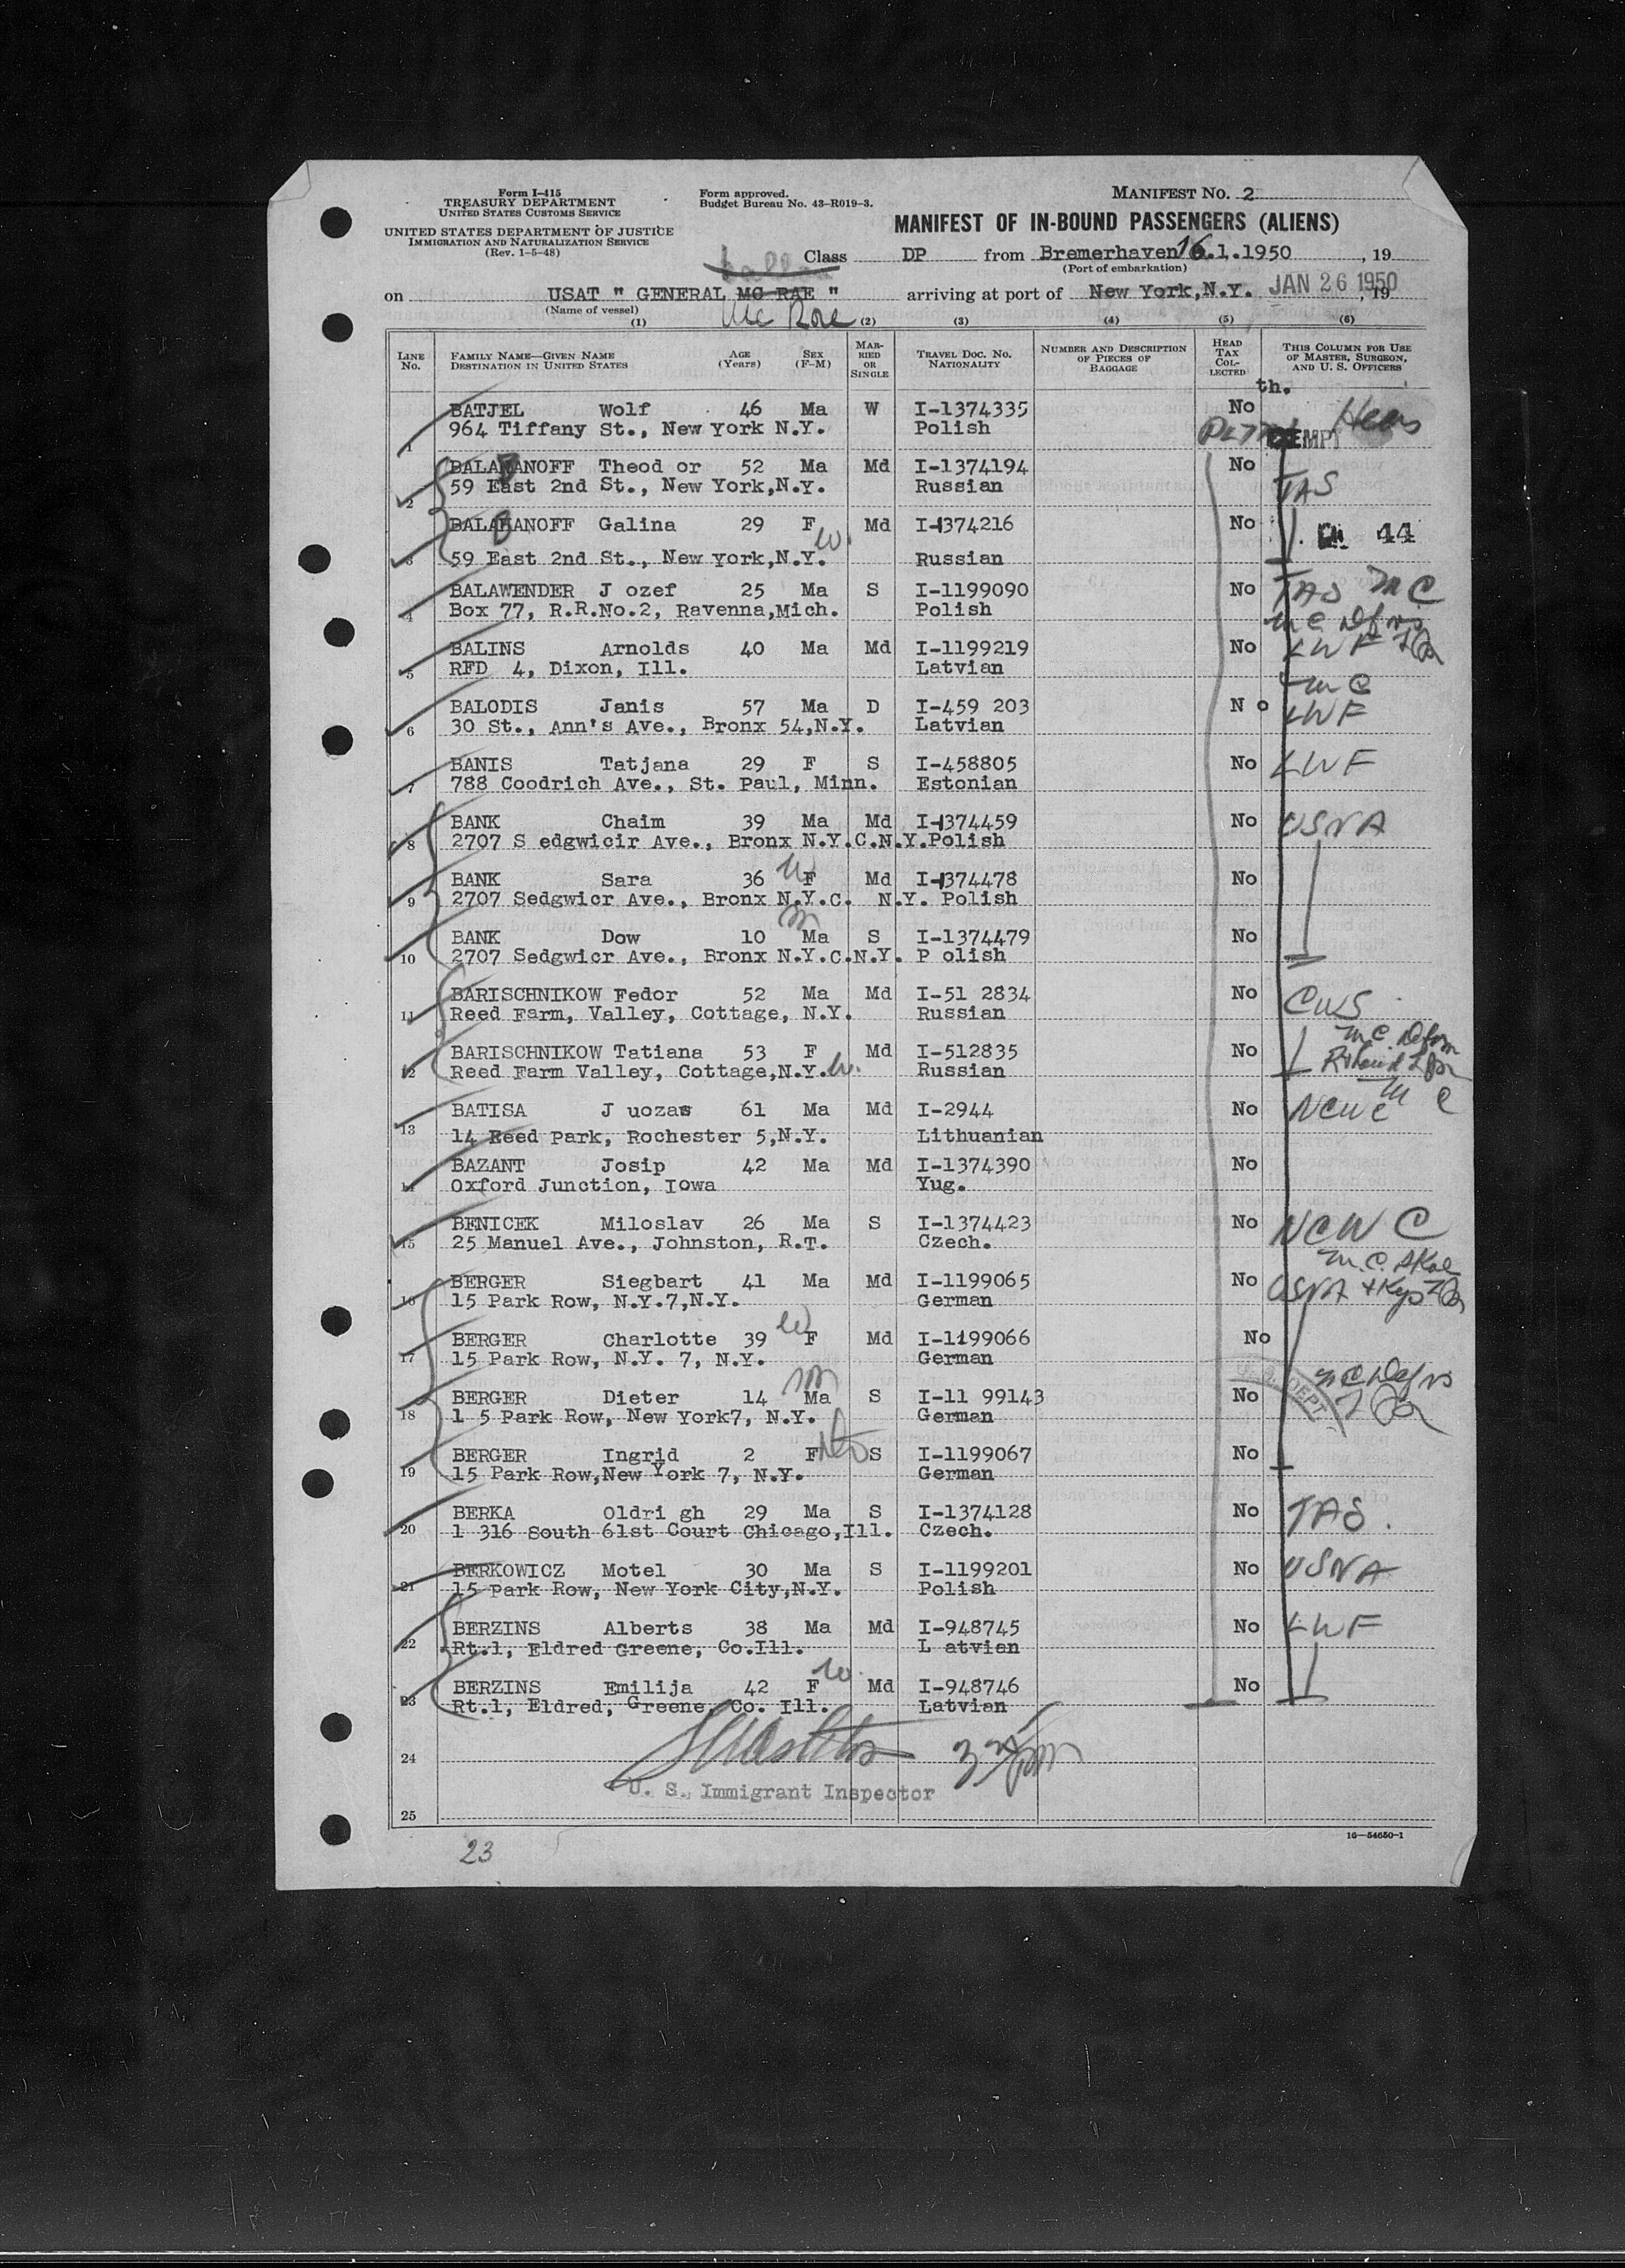 Form I-415
TREASURY DEPARTMENT
UNITED STATES CUSTOMS SERVICE
UNITED STATES DEPARTMENT OF JUSTICE
IMMIGRATION AND NATURALIZATION SERVICE
(Rev. 1-5-48)
Form approved.
Budget Bureau No. 43-R019-3.
MANIFEST NO. 2
MANIFEST OF IN-BOUND PASSENGERS (ALIENS)
Class DP from Bremerhaven 16.1.1950, 19
(Port of embarkation)
on USAT " GENERAL MC RAE " arriving at port of New York,N.Y. JAN 26 1950, 19
(Name of vessel)
Mc Rae
(1) (2) (3) (4) (5) (6)
LINE No. FAMILY NAME—GIVEN NAME DESTINATION IN UNITED STATES AGE (Years) SEX (F-M) MARRIED OR SINGLE TRAVEL DOC. NO. NATIONALITY NUMBER AND DESCRIPTION OF PIECES OF BAGGAGE HEAD TAX COLLECTED THIS COLUMN FOR USE OF MASTER, SURGEON, AND U. S. OFFICERS
th.
BATJEL Wolf 46 Ma W I-1374335 No
1 964 Tiffany St., New York N.Y. Polish EXEMPT Heas
BALABANOFF Theod or 52 Ma Md I-1374194 No
2 59 East 2nd St., New York,N.Y. Russian TAS
BALABANOFF Galina 29 F W. Md I-1374216 No 44
3 59 East 2nd St., New York,N.Y. Russian
BALAWENDER J ozef 25 Ma S I-1199090 No TAS M C
4 Box 77, R.R.No.2, Ravenna,Mich. Polish
BALINS Arnolds 40 Ma Md I-1199219 No LWF
5 RFD 4, Dixon, Ill. Latvian
m C
BALODIS Janis 57 Ma D I-459 203 N o LWF
6 30 St., Ann's Ave., Bronx 54,N.Y. Latvian
BANIS Tatjana 29 F S I-458805 No LWF
7 788 Coodrich Ave., St. Paul, Minn. Estonian
BANK Chaim 39 Ma Md I-1374459 No USNA
8 2707 S edgwicir Ave., Bronx N.Y.C.N.Y.Polish
BANK Sara 36 W F Md I-1374478 No
9 2707 Sedgwicr Ave., Bronx N.Y.C. N.Y. Polish
BANK Dow 10 Ma S I-1374479 No
10 2707 Sedgwicr Ave., Bronx N.Y.C.N.Y. P olish
BARISCHNIKOW Fedor 52 Ma Md I-51 2834 No CWS
11 Reed Farm, Valley, Cottage, N.Y. Russian
BARISCHNIKOW Tatiana 53 F Md I-512835 No
12 Reed Farm Valley, Cottage,N.Y. W. Russian
BATISA J uozas 61 Ma Md I-2944 No NCWC m C
13 14 Reed Park, Rochester 5,N.Y. Lithuanian
BAZANT Josip 42 Ma Md I-1374390 No
14 Oxford Junction, Iowa Yug.
BENICEK Miloslav 26 Ma S I-1374423 No NCWC
15 25 Manuel Ave., Johnston, R.T. Czech.
BERGER Siegbart 41 Ma Md I-1199065 No USNA
16 15 Park Row, N.Y.7,N.Y. German
BERGER Charlotte 39 W F Md I-1199066 No
17 15 Park Row, N.Y. 7, N.Y. German
BERGER Dieter 14 Ma S I-11 99143 No
18 1 5 Park Row, New York7, N.Y. German
BERGER Ingrid 2 F S I-1199067 No
19 15 Park Row,New York 7, N.Y. German
BERKA Oldri gh 29 Ma S I-1374128 No TAS.
20 1 316 South 61st Court Chicago,Ill. Czech.
BERKOWICZ Motel 30 Ma S I-1199201 No USNA
21 15 Park Row, New York City,N.Y. Polish
BERZINS Alberts 38 Ma Md I-948745 No LWF
22 Rt.1, Eldred Greene, Co.Ill. L atvian
BERZINS Emilija 42 F W. Md I-948746 No
23 Rt.1, Eldred, Greene, Co. Ill. Latvian
24
U. S. Immigrant Inspector
25
16-54650-1
23